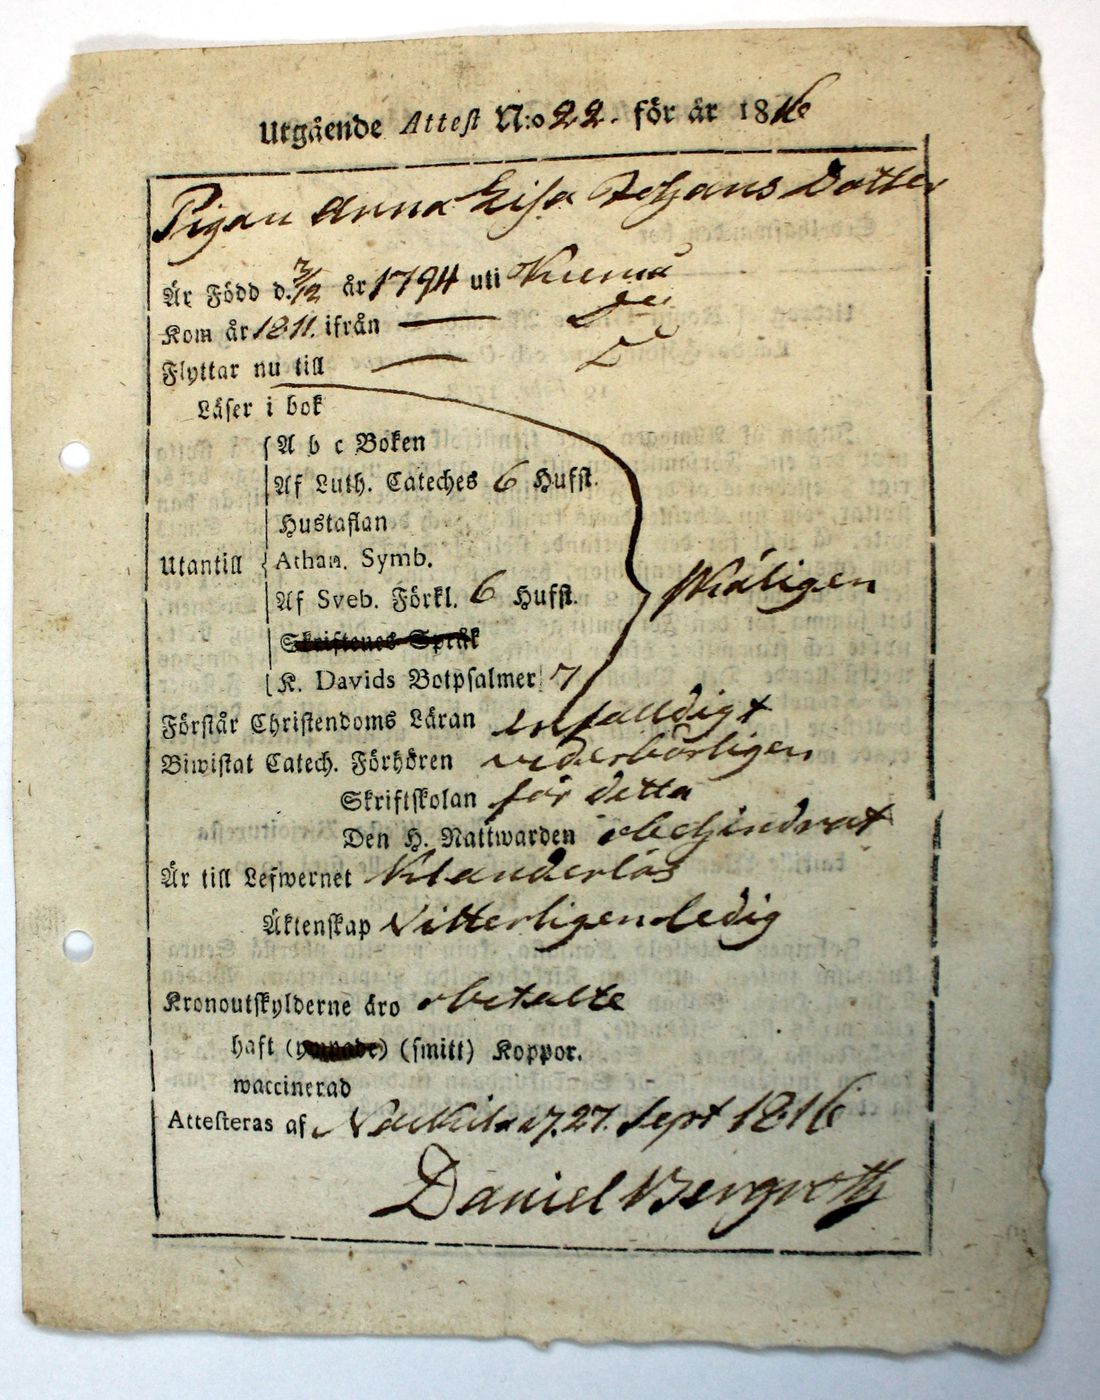 Utgående Attest N:o 22. för år 1816
Pigan Anna Lisa Johans Dotter
Är Född d. 3/12 år 1794 uti
Kom år 1811. ifrån — Do
Flyttar nu till — Do
Läser i bok
A b c Boken
Af Luth. Cateches 6 Hufst.
Hustaflan
Utantill Athan. Symb.
Af Sveb. Förkl. 6 Hufst. skäligen
Skriftenes Språk
K. Davids Botpsalmer 7
Förstår Christendoms Läran enfaldigt
Biwistat Catech. Förhören vederbörligen
Skriftskolan för detta
Den H. Nattwarden obehindrat
Är till Lefwernet Klanderlös
Äktenskap Vitterligen ledig
Kronoutskylderne äro obetalte
haft (ympade) (smitt) Koppor.
waccinerad
Attesteras af 27. Sept 1816
Daniel Bergroth